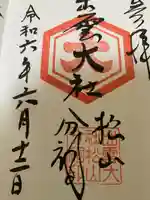 奉拝
出雲大社
松山分祠
令和六年六月十二日